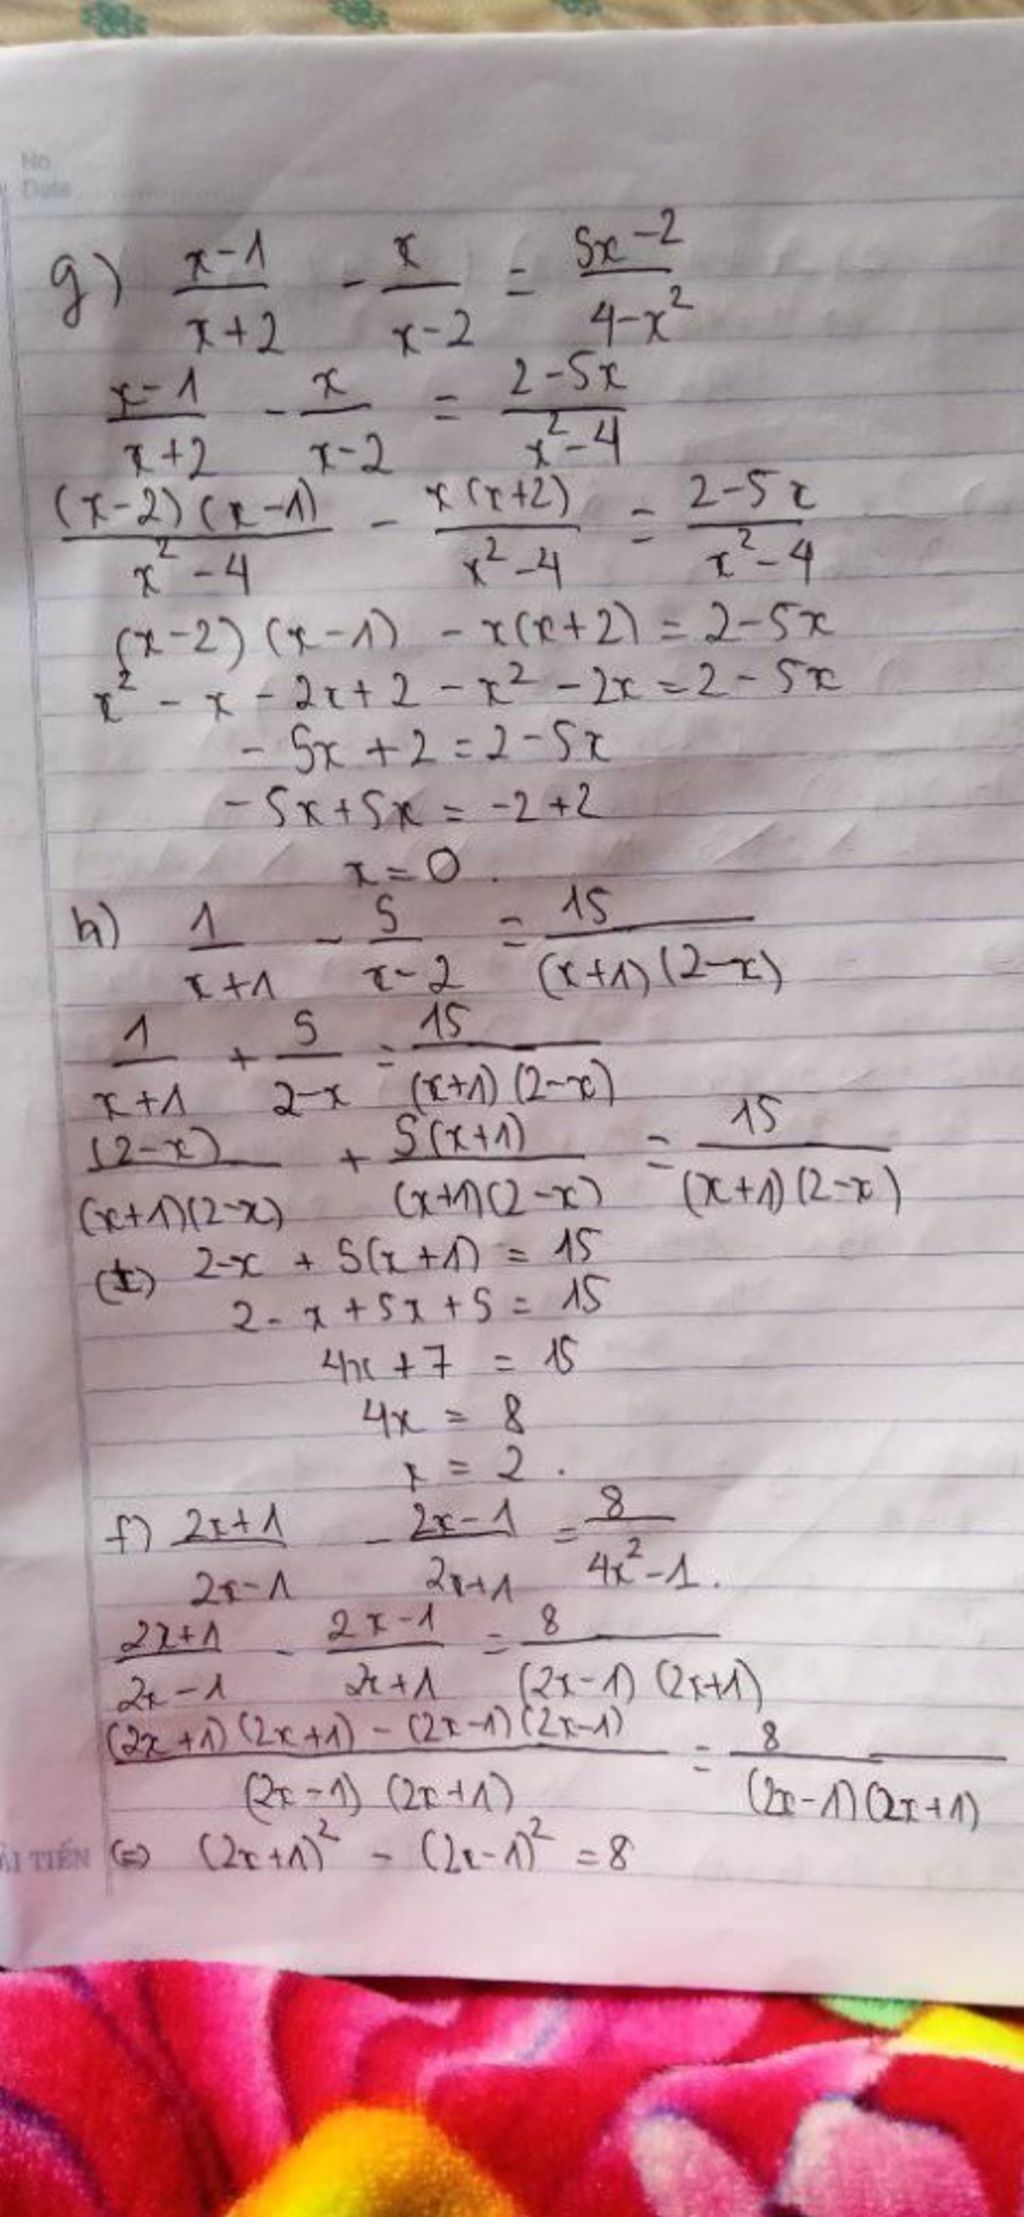 No.
Date
g) \frac{x-1}{x+2} - \frac{x}{x-2} = \frac{5x-2}{4-x^2}
\frac{x-1}{x+2} - \frac{x}{x-2} = \frac{2-5x}{x^2-4}
\frac{(x-2)(x-1)}{x^2-4} - \frac{x(x+2)}{x^2-4} = \frac{2-5x}{x^2-4}
(x-2)(x-1) - x(x+2) = 2-5x
x^2 - x - 2x + 2 - x^2 - 2x = 2 - 5x
- 5x + 2 = 2 - 5x
- 5x + 5x = -2 + 2
x = 0 .
h) \frac{1}{x+1} - \frac{5}{x-2} = \frac{15}{(x+1)(2-x)}
\frac{1}{x+1} + \frac{5}{2-x} = \frac{15}{(x+1)(2-x)}
\frac{(2-x)}{(x+1)(2-x)} + \frac{5(x+1)}{(x+1)(2-x)} = \frac{15}{(x+1)(2-x)}
2-x + 5(x+1) = 15
2 - x + 5x + 5 = 15
4x + 7 = 15
4x = 8
x = 2 .
f) \frac{2x+1}{2x-1} - \frac{2x-1}{2x+1} = \frac{8}{4x^2-1} .
\frac{2x+1}{2x-1} - \frac{2x-1}{2x+1} = \frac{8}{(2x-1)(2x+1)}
\frac{(2x+1)(2x+1) - (2x-1)(2x-1)}{(2x-1)(2x+1)} = \frac{8}{(2x-1)(2x+1)}
TIẾN (=) (2x+1)^2 - (2x-1)^2 = 8